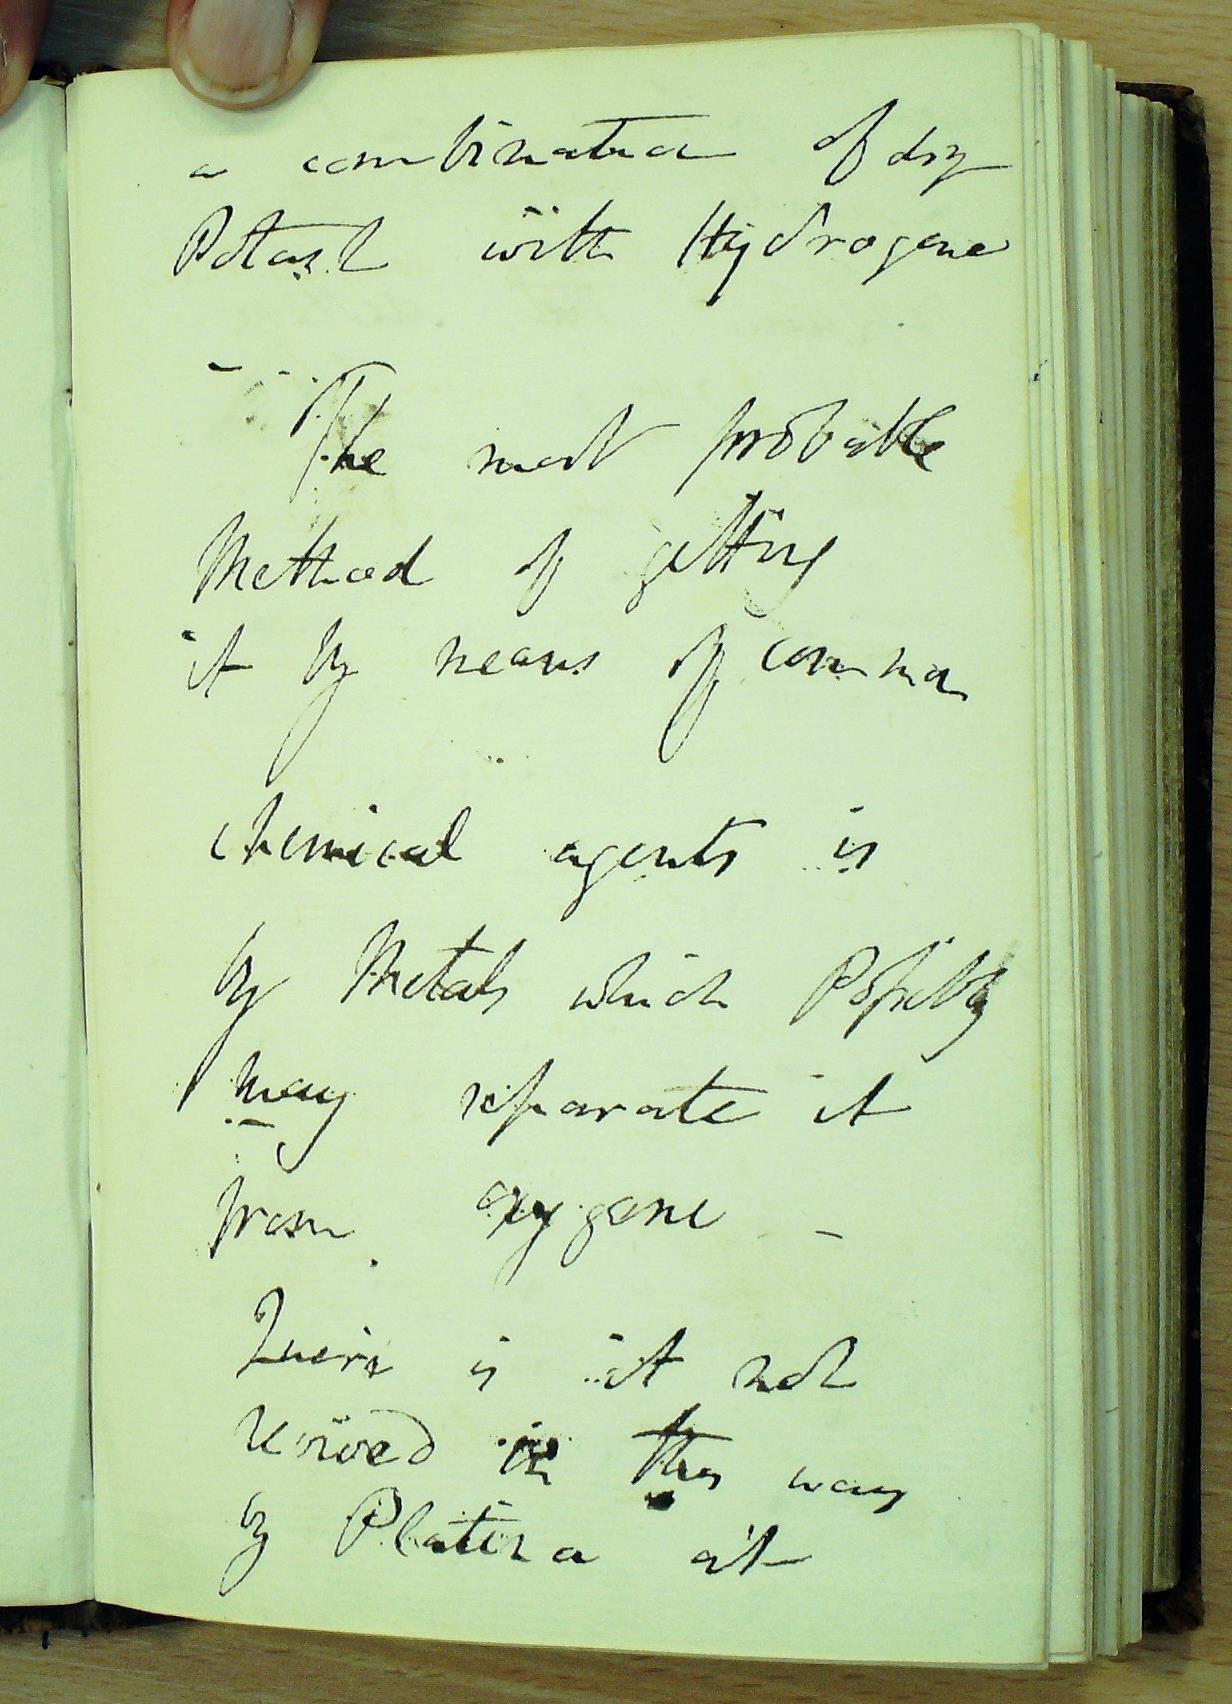 a combination of dry
Potash with Hydrogene
- The most probable
Method of getting
it by means of common
chemical agents is
by Metals which Possibly
may separate it
from oxygene -
Quere is it not
revived in this way
by Platina at